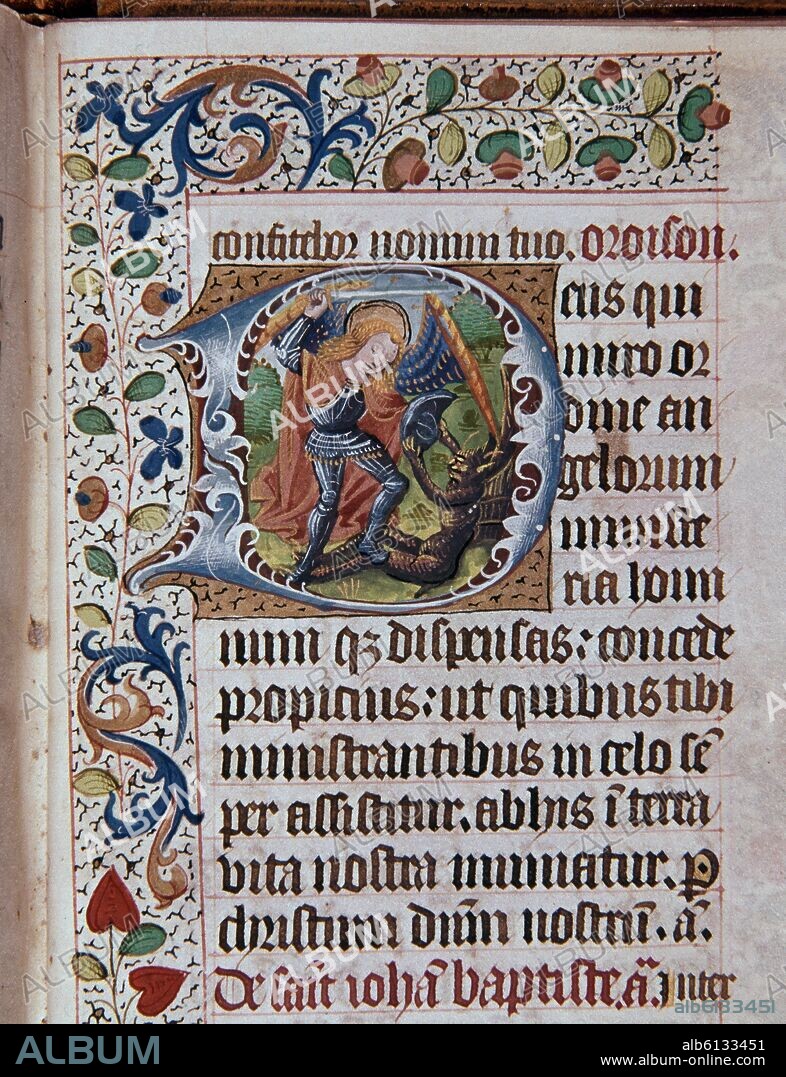 confitebor nomini tuo. oroison.
Deus qui
miro or
dine an
gelorum
miniſte
ria homi
num qꝫ diſpenſas: concede
propicius: ut quibus tibi
miniſtrantibus in celo ſē
per aſſiſtatur. ab his ī terra
vita noſtra muniatur. P
chriſtum dūm noſtrū. a.
De ſaīt iohā baptiſte. ā. Inter
ALBUM
alb6133451
www.album-online.com